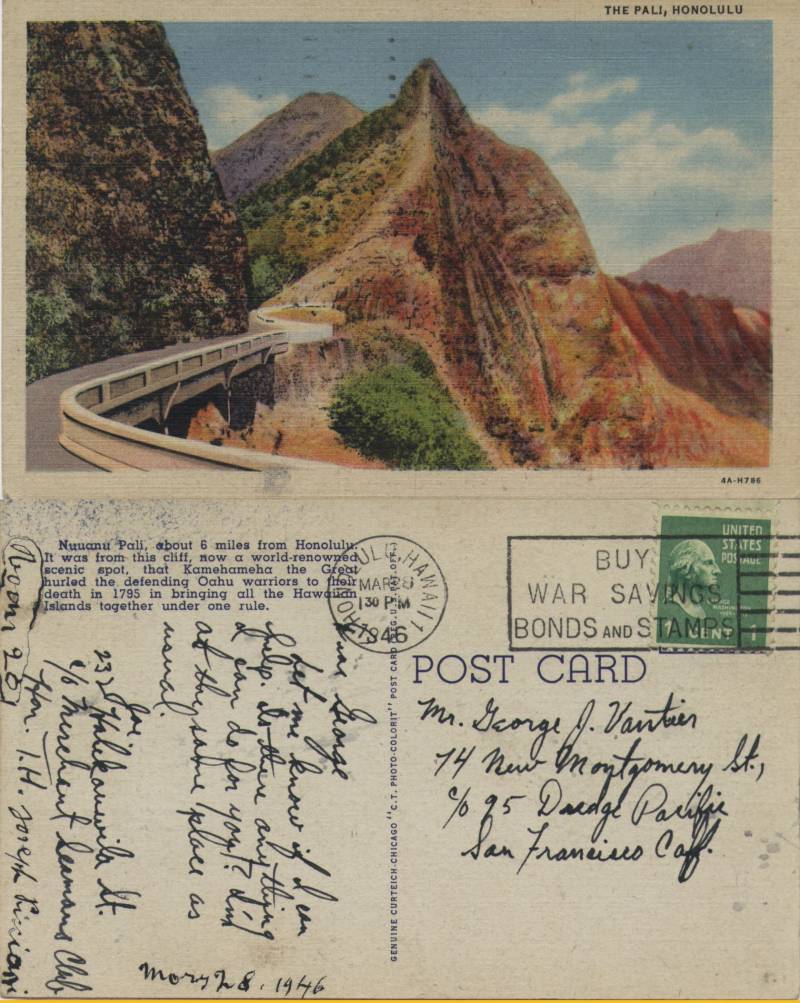 THE PALI, HONOLULU
4A-H786
Nuuanu Pali, about 6 miles from Honolulu.
It was from this cliff, now a world-renowned
scenic spot, that Kamehameha the Great
hurled the defending Oahu warriors to their
death in 1795 in bringing all the Hawaiian
Islands together under one rule.
HONOLULU, HAWAII
MAR 8
1 30 PM
1946
BUY
WAR SAVINGS
BONDS AND STAMPS
UNITED
STATES
POSTAGE
GEORGE
WASHINGTON
1 CENT 1
POST CARD
GENUINE CURTEICH-CHICAGO "C.T. PHOTO-COLORIT" POST CARD (REG. U.S. PAT. OFF.)
Dear George
Let me know if I can
help. Is there anything
I can do for you? I'm
at the same place as
usual.
Joe.
232 St.
c/o Merchant Seamans Club
Hon. T.H. Joseph
Room 201
March 8, 1946
Mr. George J. Vautier
74 New Montgomery St.,
c/o 95 Dredge Pacific
San Francisco Calf.